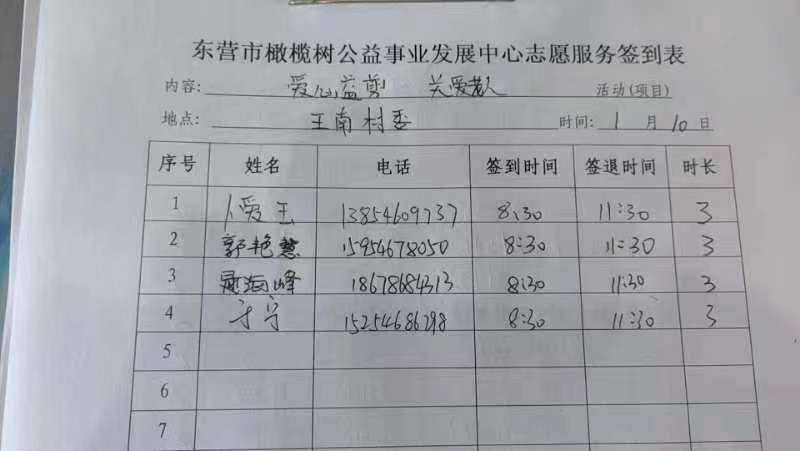 东营市橄榄树公益事业发展中心志愿服务签到表
内容: 爱心益剪 关爱老人 活动(项目)
地点: 王南村委 时间: 1 月 10 日
序号 姓名 电话 签到时间 签退时间 时长
1 卜爱玉 13854609737 8:30 11:30 3
2 郭艳慧 15954678050 8:30 11:30 3
3 海峰 18678684313 8:30 11:30 3
4 于宁 15254686798 8:30 11:30 3
5
6
7